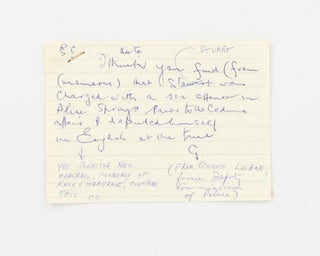 S.C. Note STUART
I thank you find (from
(memory) that Stewart was
charged with a sex offence in
Alice Springs prior to the Ceduna
affair & defended himself
in English at the trial
G.
YES, SENATOR NEIL
HARGRAVE, FORMERLY OF
KNOX & HARGRAVE, CONFIRMS
THIS. S.C.
(FROM GEOFF LEANE,
former Deputy
Commissioner
of Police)